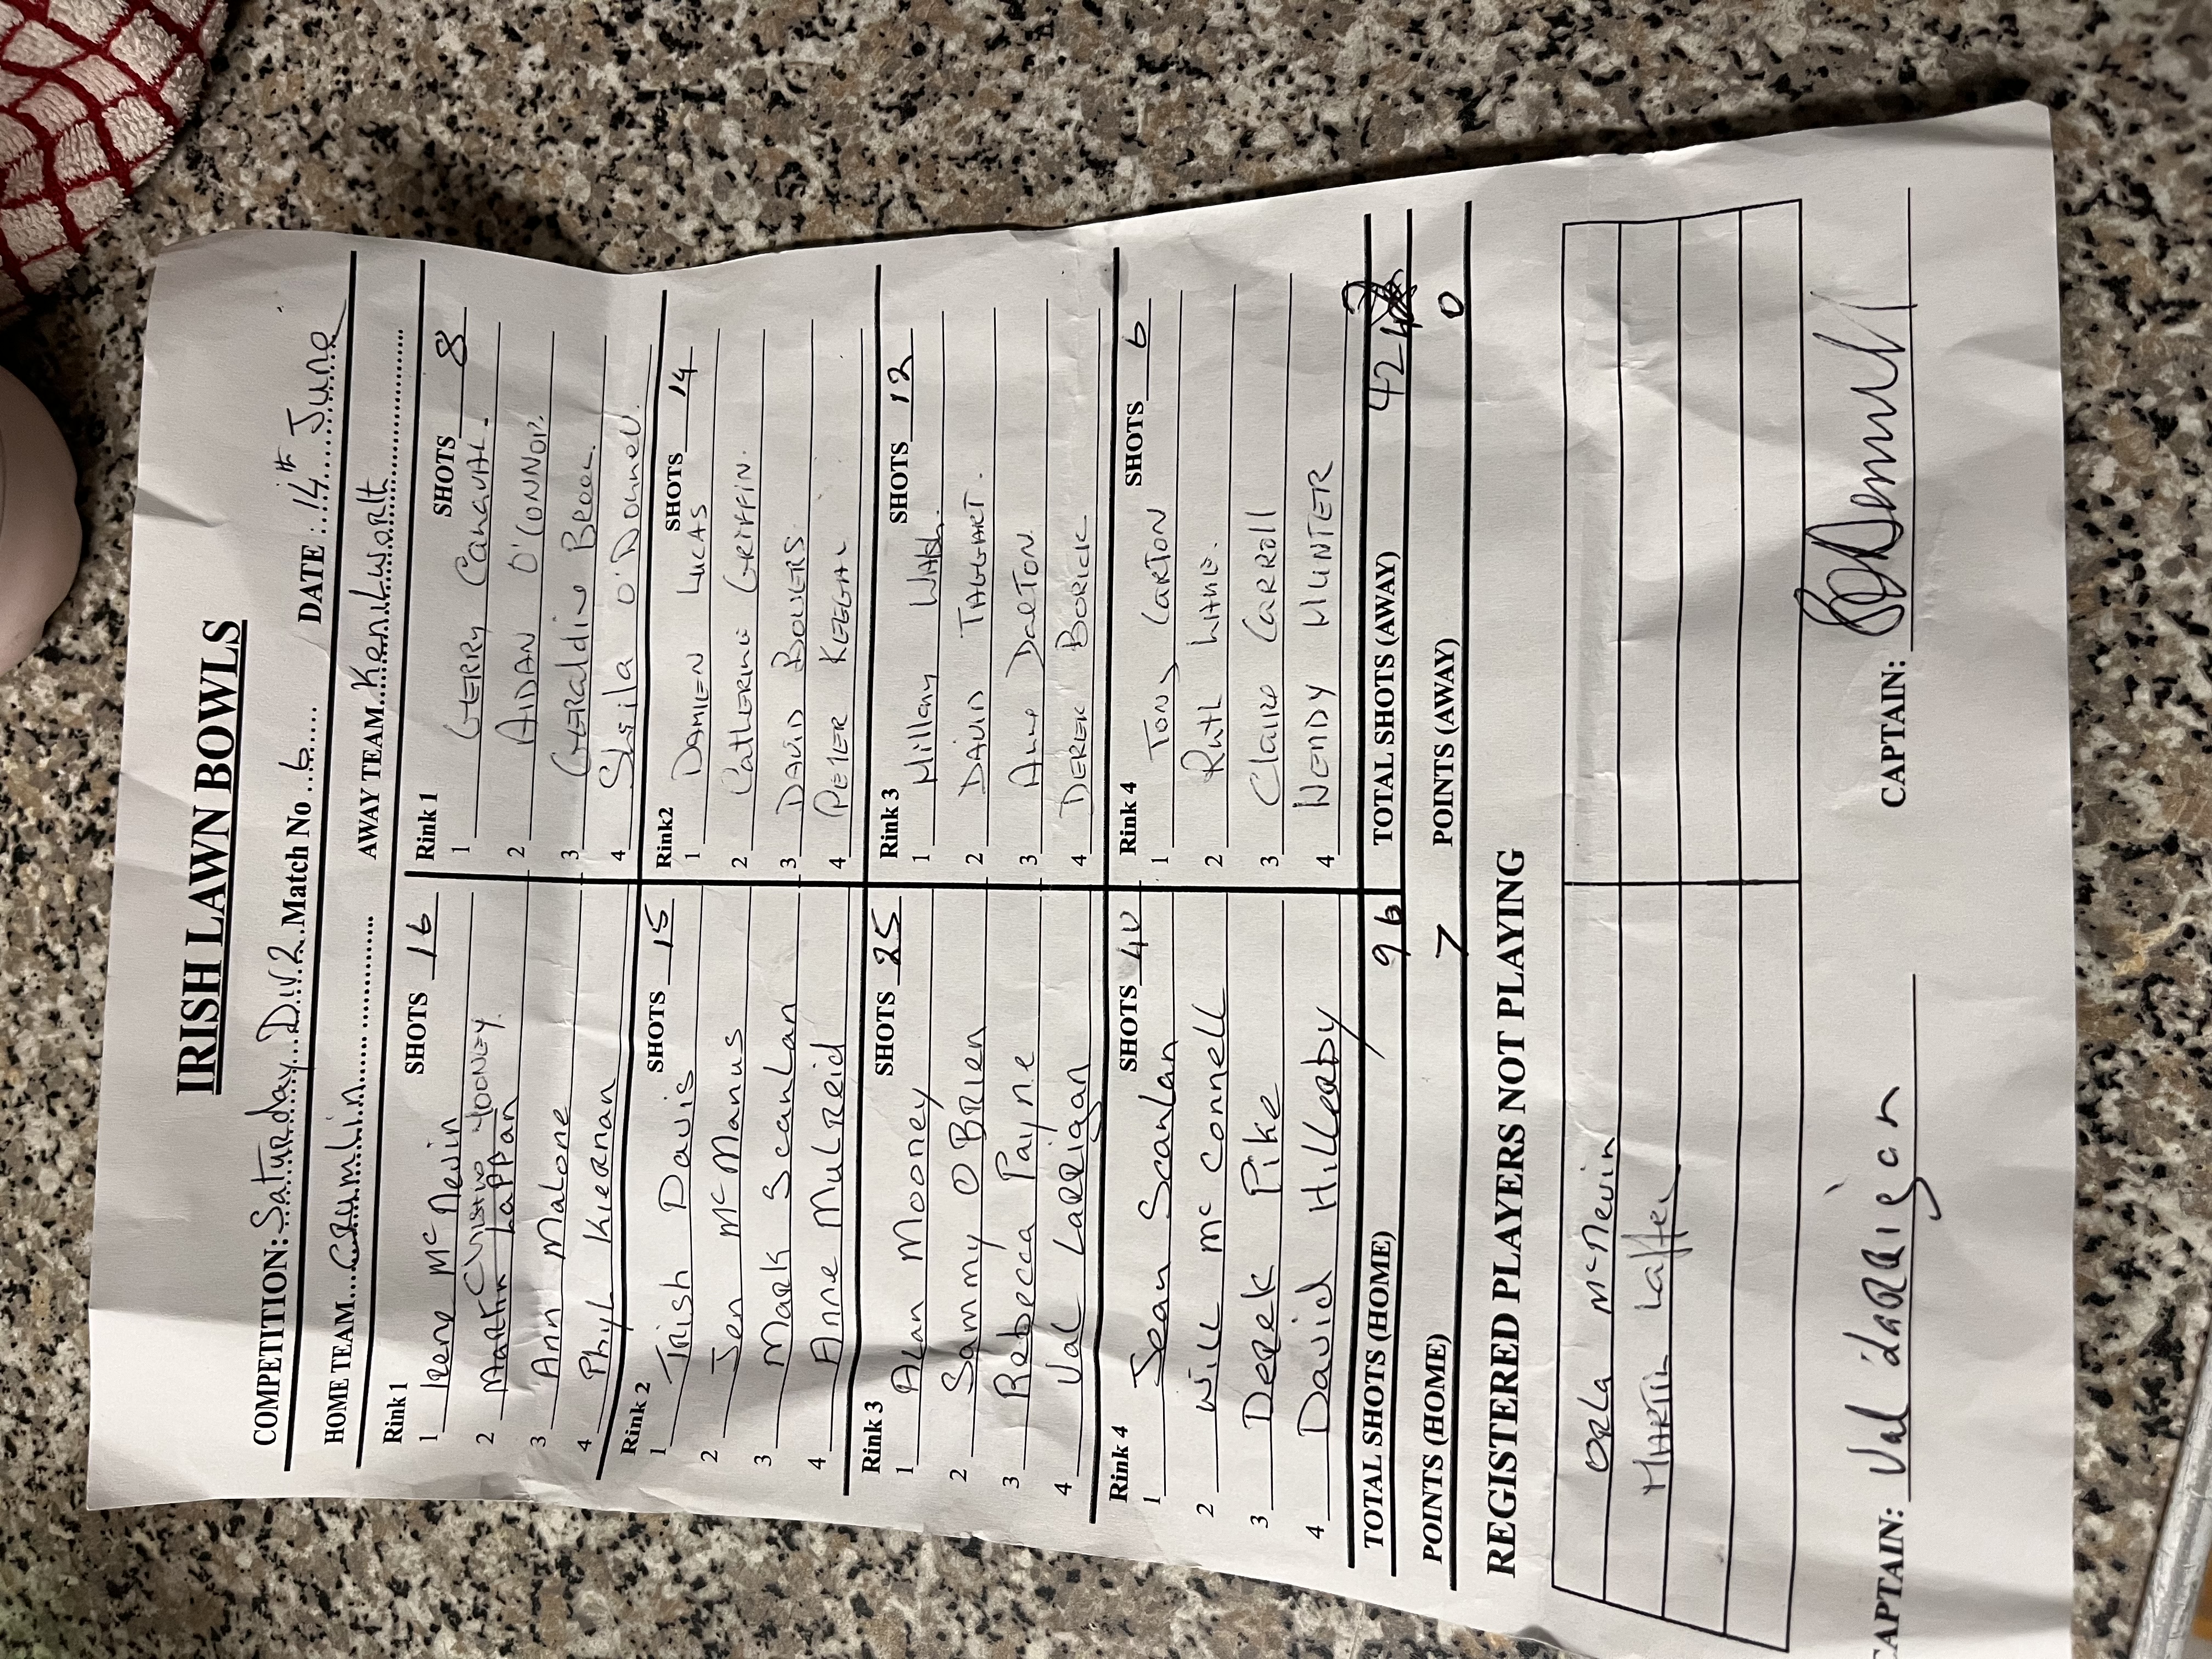 IRISH LAWN BOWLS
COMPETITION: Saturday Div 2 Match No 6 DATE: 14th June
HOME TEAM Crumlin AWAY TEAM Kenilworth
Rink 1 SHOTS 16 Rink 1 SHOTS 8
1 Irene Mc Nevin 1 GERRY Canavan.
2 Martin Lappan MOONEY. 2 AIDAN O'CONNOR.
3 Ann Malone 3 GERaldine
4 Phyl Kiernan 4 Sheila O'Donnell
Rink 2 SHOTS 15 Rink2 SHOTS 14
1 Trish Davis 1 DAMIEN LUCAS
2 Jen Mc Manus 2 CatHERINE GRIFFIN.
3 Mark Scanlan 3 DAVID BOWERS.
4 Anne Mulreid 4 PETER KEEGAN
Rink 3 SHOTS 25 Rink 3 SHOTS 12
1 Alan Mooney 1 Hillary
2 Sammy O Brien 2 DAVID TAGGART.
3 Rebecca Payne 3 Anne DalTON.
4 Val Larrigan 4 DEREK BORICK
Rink 4 SHOTS 40 Rink 4 SHOTS 6
1 Sean Scanlan 1 TONY CARTON
2 Will Mc Connell 2 RutH
3 Derek Pike 3 Claire CARROll
4 David Hilleaby 4 WENDY HUNTER
TOTAL SHOTS (HOME) 96 TOTAL SHOTS (AWAY) 42
POINTS (HOME) 7 POINTS (AWAY) 0
REGISTERED PLAYERS NOT PLAYING
Orla Mc Nevin
MARTIN Laffey
CAPTAIN: Val Larrigan CAPTAIN: